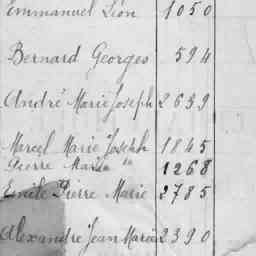 Emmanuel Léon 1050
Bernard Georges 594
André Marie Joseph 2639
Marcel Marie Joseph 1845
Pierre Marie 1268
Emile Pierre Marie 2785
Alexandre Jean Marie 2390